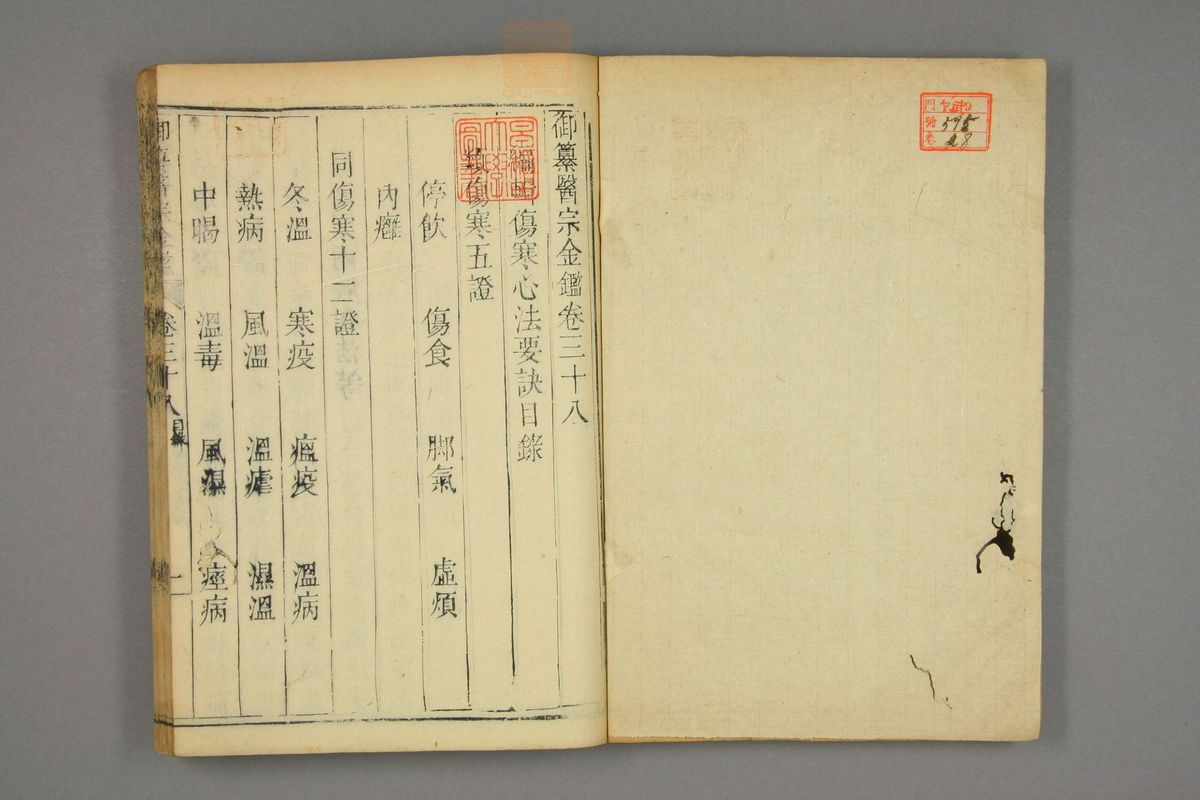 御纂醫宗金鑑卷三十八
編輯傷寒心法要訣目錄
類傷寒五證
停飲 傷食 脚氣 虛煩
內癰
同傷寒十二證
冬溫 寒疫 瘟疫 溫病
熱病 風溫 溫瘧 濕溫
中暍 溫毒 風濕 痙病
卷三十八 目錄 一
門
號 595
卷 28